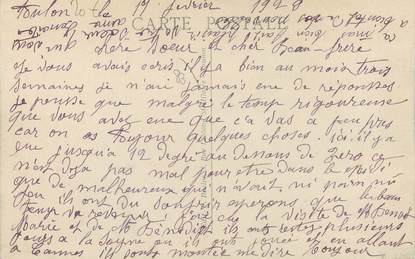 Toulon le 17 février 1929
CARTE POSTALE
Chère Soeur et cher Beau-frère
Je vous avais écris il y a bien au moin trois
semaines je n'ai jamais eue de réponses
je pense que malgré le temp rigoureuse
que vous avez eue que ca vas a peu prés
car on a toujour quelques choses. ici il y a
eue jusqu'a 12 degré au dessous de zero ce
n'est deja pas mal pour etre dans le midi
que de malheureux qui n'avait ni pain ni
feu ils ont du soufrir esperons que le beau
temp va revenir. J'ai eue la visite de Benoit
Marie et de Bénédict ils ont restes plusieurs
jours a la Seyne ou ils ont loués et en allant
a Cannes ils sont montée me dire bonjour